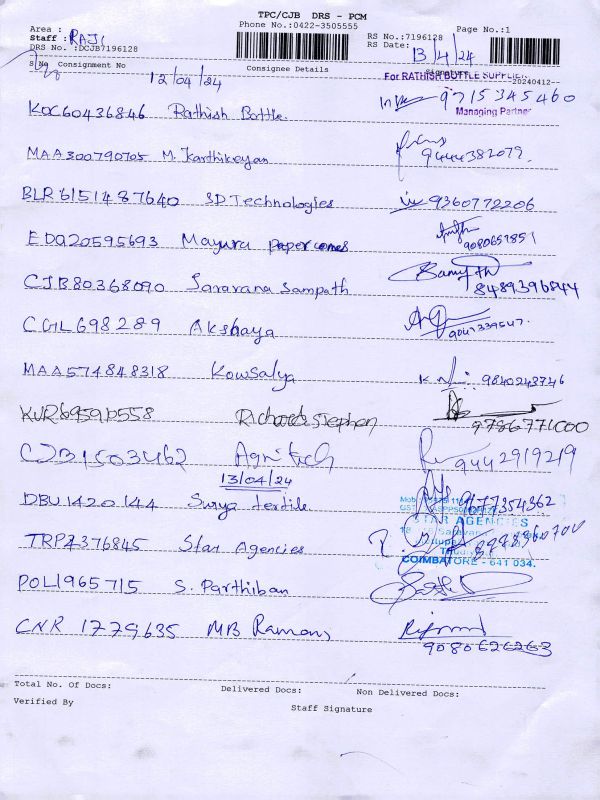 TPC/CJB DRS - PCM
Phone No.:0422-3505555
Area :
Staff : RAJI
DRS No. :DCJB7196128
RS No.:7196128
RS Date: 13/4/24
Page No.:1
S.No Consignment No
Consignee Details
Signature
--20240412--
12/04/24
For RATHISH BOTTLE SUPPLIER
9715345460
Managing Partner
KOC60436846 Rathish Bottle
MAA300790705 M. Karthikeyan 9444382079
BLR6151487640 3D Technologies 9360772206
EDQ20595693 Mayura paper cones
CJB80368090 Saravana Sampath 8489396844
CGL698289 Akshaya
MAA574848318 Kowsalya 9840243746
Richard Stephen 9786771000
CJB1503462 Agnitech 9442919219
13/04/24
DBU1420144 Surya textile
TRP2376845 Star Agencies
STAR AGENCIES
COIMBATORE - 641 034.
POL1965715 S. Parthiban
CNR 1779635 MB Ramani
9080626263
Total No. Of Docs:
Delivered Docs:
Non Delivered Docs:
Verified By
Staff Signature